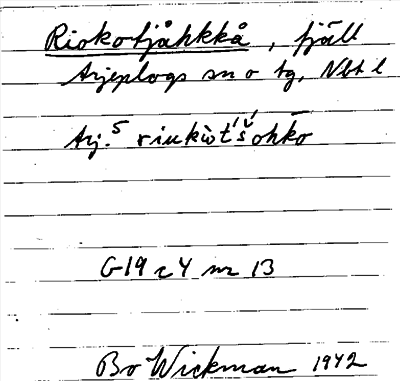 Riokotjåhkkå, fjäll
Arjeplogs sn o tg, Nbt l
Arj. 5 riukὼt´š́ohkō
G19 c4 nr 13
Bo Wickman 1942